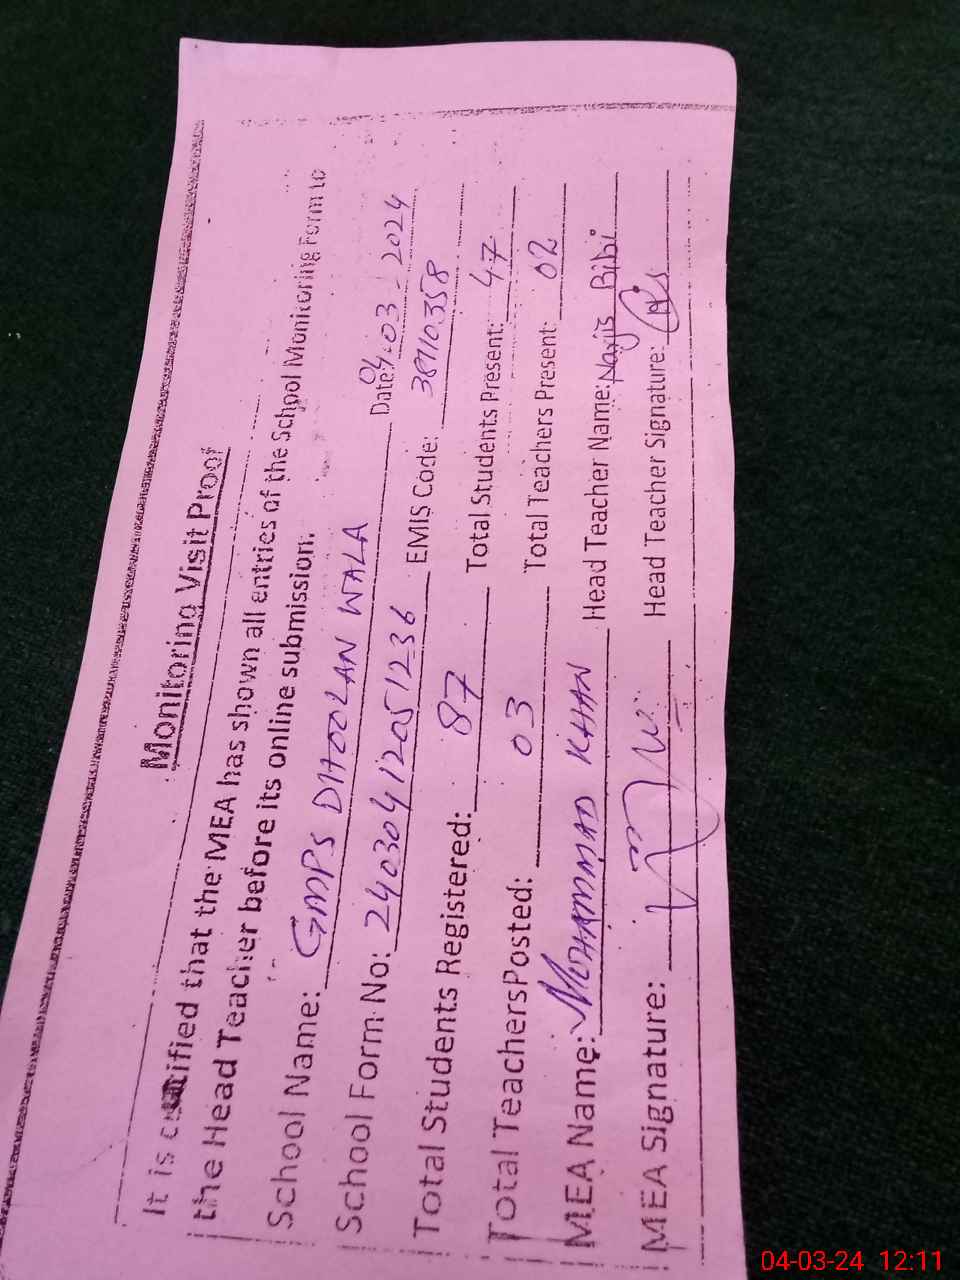 Monitoring Visit Proof
It is certified that the MEA has shown all entries of the School Monitoring Form to
the Head Teacher before its online submission.
School Name: GMPS DHOOLAN WALA Date: 04.03.2024
School Form No: 24030412051236 EMIS Code: 38110358
Total Students Registered: 87 Total Students Present: 47
Total TeachersPosted: 03 Total Teachers Present: 02
MEA Name: MOHAMMAD KHAN Head Teacher Name: Narjis Bibi
MEA Signature: Head Teacher Signature:
04-03-24 12:11